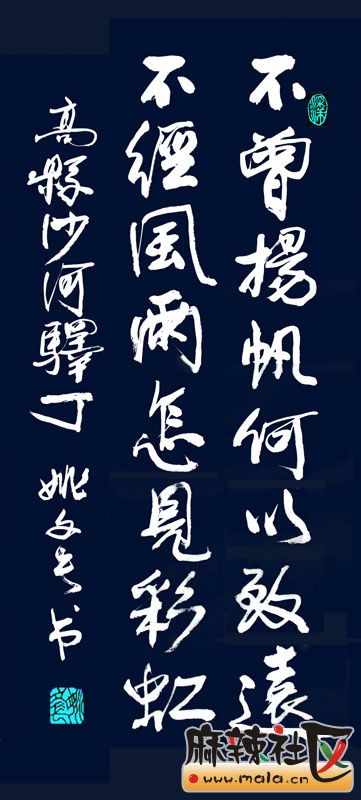 不曾揚帆何以致遠
不經風雨怎見彩虹
高縣沙河驛丁 姚文長书
麻辣社区
www.mala.cn